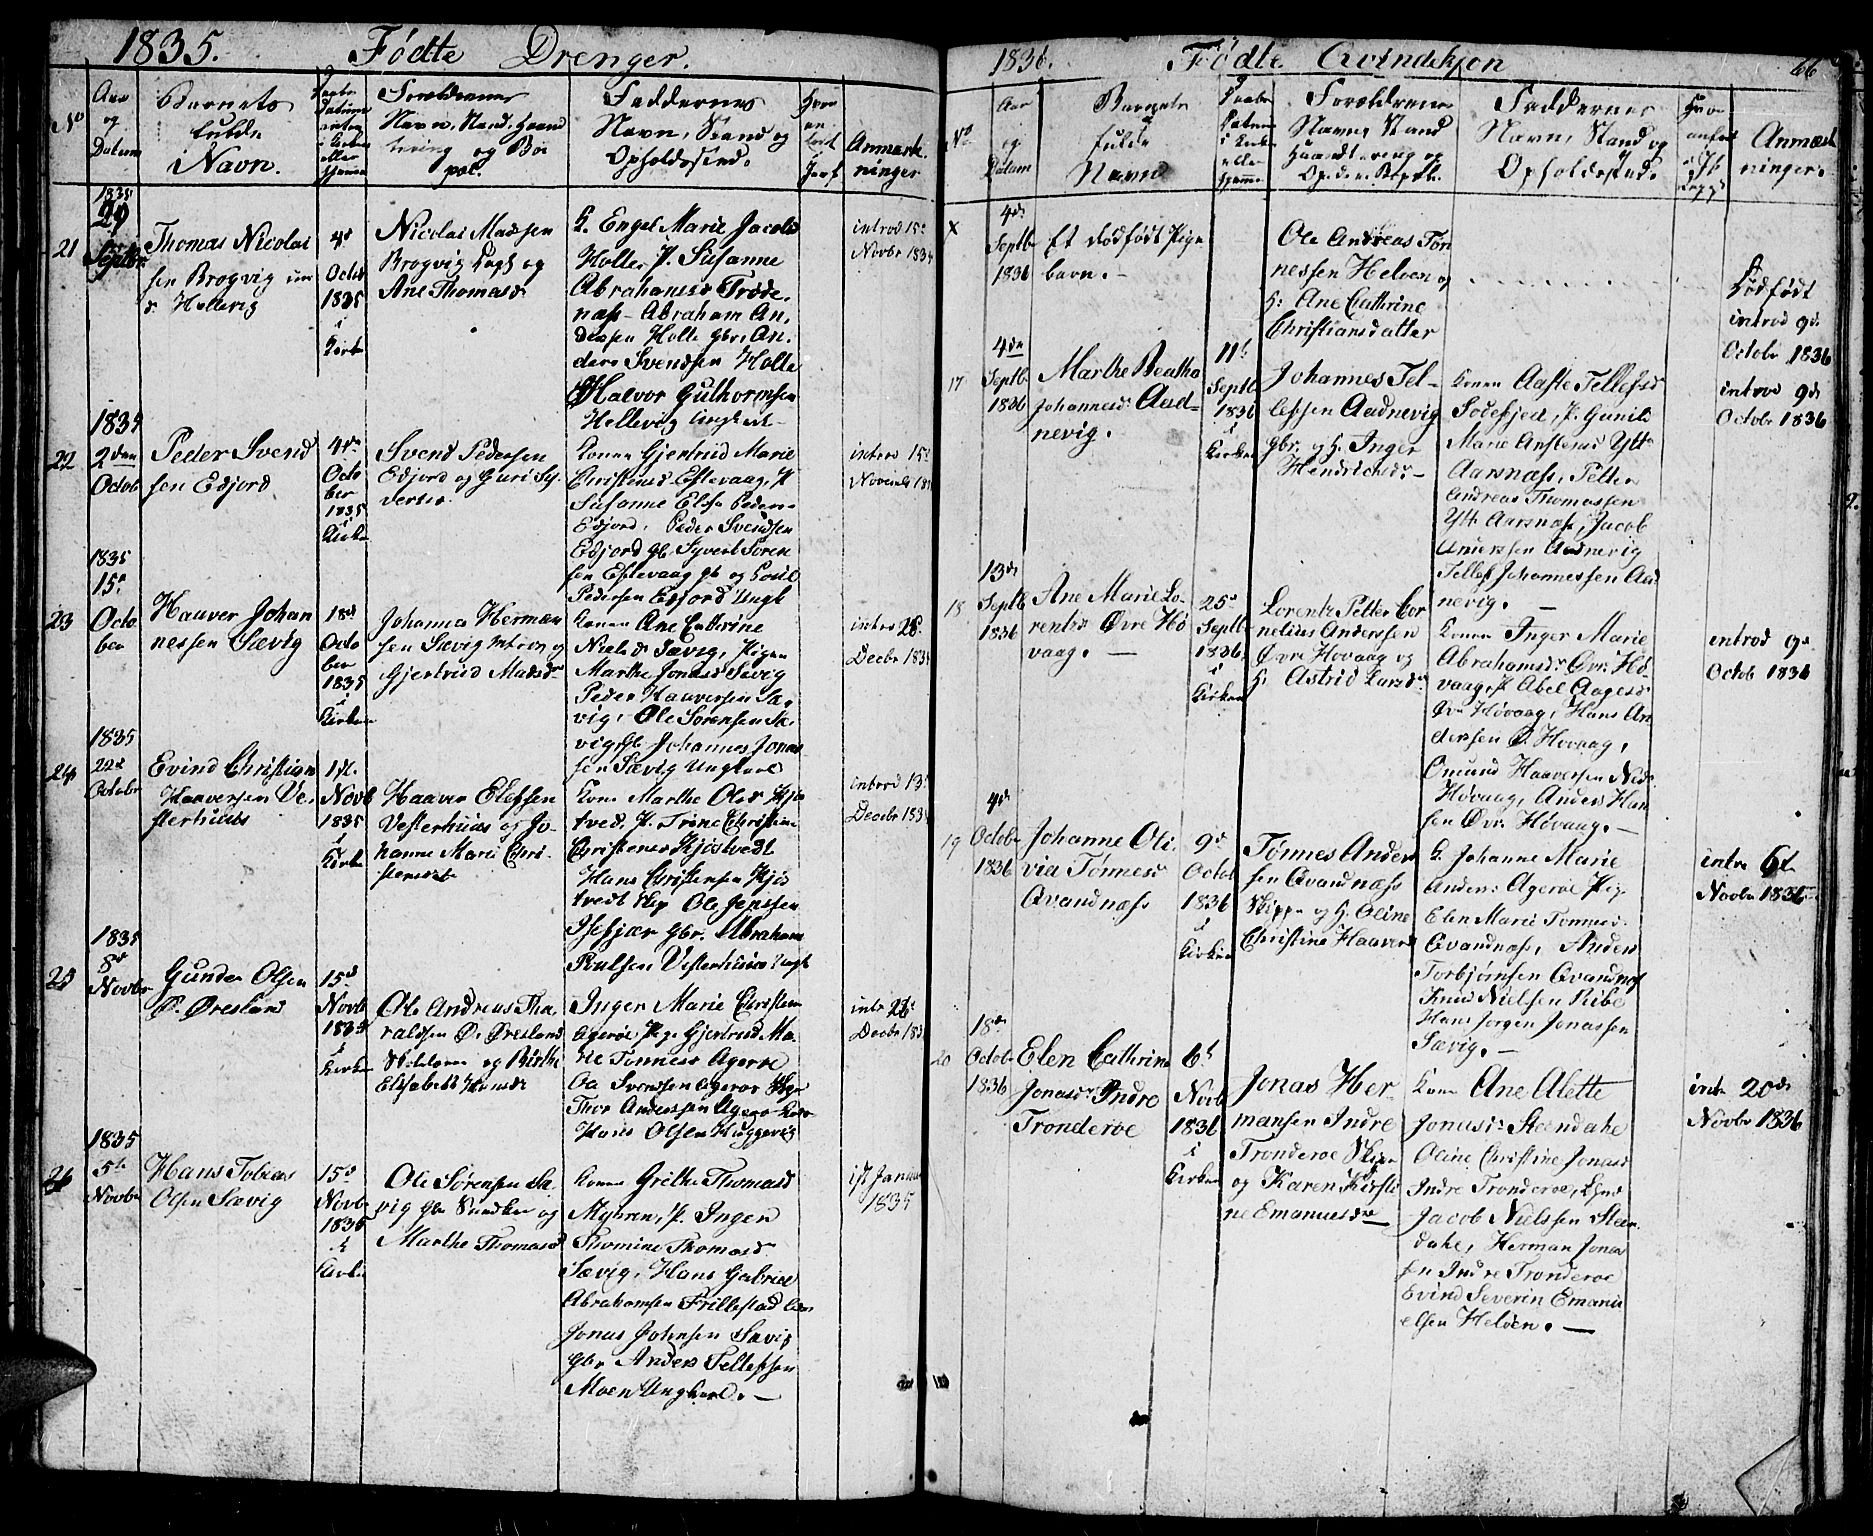 1835. Fødte Drenger.
No
Aar
og
Datum
Barnets
fulde
Navn.
Daabs
Datum
enten
i Kirken
eller
hjemme
Forældrenes
Navn, Stand, Haand
tering og Bo
pæl.
Faddernes
Navn, Stand og
Opholdssted.
Anmærk.
ninger
21
1835
29
Septbr
Thomas Nicolai
sen Brogvig
Hellevig
4de
Octob
1835
i
Kirken
Nicolai Madsen
Brogvig og
Ane Thomasd
K. Engel Marie Jacobsd
Holte, P. Susanne
Abrahamsd Trøde
næs - Abraham An
dersen Holte gbr. An
ders Svendsen Holte
Halvor Guthormsen
Hellevig Ungkarl
introd 15de
Novbr 1835
22
1835
2den
Octob
Peder Svend
sen Edjord
4de
Octo
ber
1835
i
Kirken
Svend Pedersen
Edjord og Guri Sy
vertsd
Konen Gjertrud Marie
Christensd Eftevaag, P.
Susanne Elisa Peders
Edjord. Peder Svendsen
Edjord gb. Syvert Søren
sen Eftevaag gb og
Pedersen Edjord Ungk
introd 15de
23
1835
15de
Octo
ber
Haaver Johan
nessen Sævig
18de
Octo
ber
1835
i
Kirken
Johannes Herman
sen Sævig og
Gjertrud Madsd
Konen Ane Cathrine
Nielsd Sævig, Pigen
Marthe Jonasd Sævig
Peder Haaversen Sæ
vig, Ole Sørensen Sæ
vig gb Johannes Jonas
sen Sævig Ungkarl
introd 28
Decbr
24
1835
22de
Octobr
Evind Christian
Haaversen Ve
sterhuus
1ste
Novb
1835
i
Kirken
Haaver Elefsen
Vesterhuus og Jo
hanne Marie Chri
stensdt
Kone Marthe Olsd Kjø
stved, P. Trine Christine
Christensd Kjøstvedt
Hans Christensen Kjøs
tvedt Ole Jenssen
Isefjær gbr. Abraham
Poulsen Vesterhuus Ungk
introd 13
Decbr
25
1835
8de
Novbr
Gunder Olsen
Ø. Øresland
15de
Novb
1835
i
Kirken
Ole Andreas Tha
raldsen Ø. Øresland
og Birthe
Elisabeth Hansd
Inger Marie Christens
Agerøe Pige Gjertrud Ma
rie Tønnesd Agerøe
Svendsen Agerøe
Thor Anderssen Agerø
Hans Olsen Huggevig
intr 26
Decbr
26
1835
5te
Novbr
Hans Tobias
Olsen Sævig
15de
Novbr
1835
i
Kirken
Ole Sørensen Sæ
vig gbr og
Marthe Thomasd
Konen Grethe Thomasd
Myhren, P. Inger
Thomine Thomasd
Sævig, Hans Gabriel
Abrahamsen Frillestad
Jonas Johnsen Sævig
gbr Anders Tellefsen
Moen Ungkarl. —
1st Januar
1835
1836. Fødte Qvindekjøn 66
No
Aar
og
Datum
Barnets
fulde
Navn
Daabs
Datum
i Kirken
eller
hjemme
Forældrenes
Navn, Stand
Haandtering og
Faddernes
Navn, Stand og
Opholdssted.
Anmærk
ninger.
x
4de
Septbr
1836
Et dødfødt Pige
barn. -
Ole Andreas Tøn
nessen Heløen og
H. Ane Cathrine
Christiansdatter
Dødfødt
introd 9de
Octobr 1836
17
4de
Septb
1836
Marthe Beatha
Johannesd. Aad-
nevig.
11te
Septb
1836
i
Kirken
Johannes Tel-
lefsen Aadnevig
gbr. og H. Inger
Hendrichsd. -
Konen Aaste Tellefsd
Sodefjed, P. Gunild
Marie Anstensd Ytt
Aarsnæs, Petter
Andreas Thomassen
Ytt. Aarsnæs, Jacob
Anderssen Aadnevig
Tellef Johannessen Aad
nevig. —
introd 9de
Octobr 1836
18
13de
Septb
1836
Ane Marie Lo-
rentsd Øvre Hø
vaag. —
25de
Septb
1836
i
Kirken
Lorentz Petter Cor
nelius Anderssen
Øvre Høvaag og
H. Astrid Larsd
Konen Inger Marie
Abrahamsd. Øvr. Hø
vaag, P. Abel Aagesd
Øvr Høvaag, Hans An
derssen Ø. Høvaag,
Omund Haaversen Ned.
Høvaag, Anders Han
sen Øvr. Høvaag. —
introd 9de
Octob 1836
19
4de
Octobr
1836
Johanne Oli
via Tønnesd
Qvandnæss
9de
Octob
1836
i
Kirken
Tønnes Ander
sen Qvandnæss
Skipper og H. Oline
Christine Haavers
K. Johanne Marie
Anders: Agerøe Pige
Elen Marie Tønnesd.
Qvandnæs, Anders
Torbjørnsen Qvandnæs
Knud Nielsen Ribe
Hans Jørgen Jonassen
Sævig. —
intr 6te
Novbr 1836
20
18de
Octobr
1836
Elen Cathrine
Jonasd. Indre
Trønderøe
6te
Novb
1836
i
Kirken
Jonas Her
mansen Indre
Trønderøe
og Karen Kirsti
ne Emanuelsd
Kone Ane Alette
Jonasd. Steendahl
Oline Christine Jonasd
Indre Trønderøe,
Jacob Nielssen Steen
dahl, Herman Jonas
sen Indre Trønderøe
Evind Severin Emanu
elsen Heløen. —
intr 20de
Novbr 1836